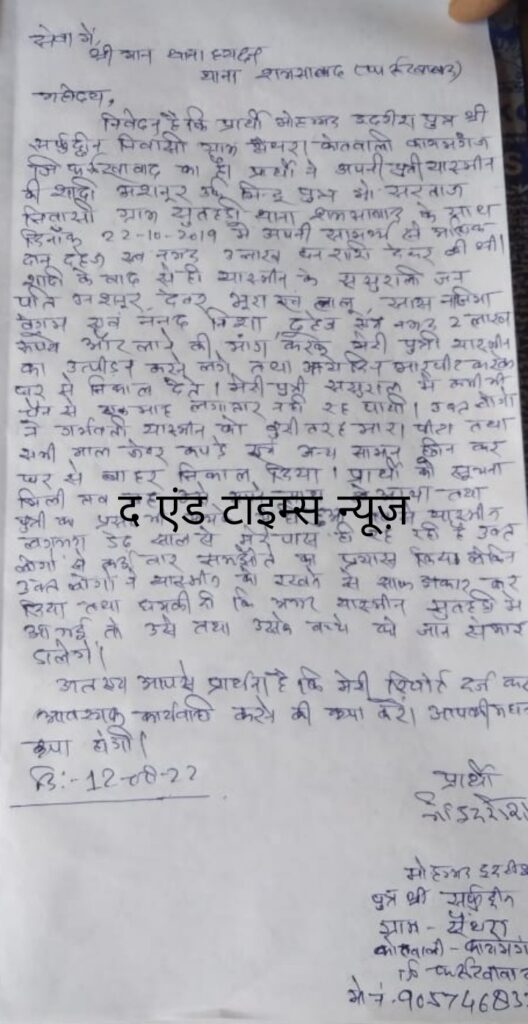 सेवा में,
श्री मान थाना
थाना शमसाबाद (फर्रुखाबाद)
महोदय,
निवेदन है कि प्रार्थी मोहम्मद इदरीश पुत्र श्री
सर्फुद्दीन निवासी ग्राम सैंथरा कोतवाली कायमगंज
जि० फर्रुखाबाद का है। प्रार्थी ने अपनी पुत्री यास्मीन
की शादी उर्फ पुत्र मो० सरताज
निवासी ग्राम सुतहड़ी थाना शमसाबाद के साथ
दिनाँक 22-10-2019 में अपनी सामर्थ्य से अधिक
दान दहेज एवं नगद धन राशि देकर की थी।
शादी के बाद से ही यास्मीन के ससुराली जन
पति देवर भूरा एवं लालू, सास
बेगम एवं ननद निशा, दहेज में नगद 2 लाख
रूपये और की मांग करके मेरी पुत्री यास्मीन
का उत्पीड़न करने लगे, तथा मारपीट करके
घर से निकाल देते। मेरी पुत्री ससुराल में कभी भी
चैन से एक माह लगातार नहीं रह पायी। उक्त लोगों
ने गर्भवती यास्मीन को बुरी तरह मारा पीटा तथा
सभी माल जेवर कपड़े एवं अन्य सामान छीन कर
घर से बाहर निकाल दिया। प्रार्थी को सूचना
मिली तब तथा
द एंड टाइम्स न्यूज़
पुत्री का यास्मीन
लगभग डेढ़ साल से मेरे पास ही रह रही है उक्त
लोगों से कई बार समझौते का प्रयास किया लेकिन
उक्त लोगों ने यास्मीन को रखने से साफ इंकार कर
दिया तथा धमकी दी कि अगर यास्मीन सुतहड़ी में
आ गई तो उसे तथा उसके बच्चे को जान से मार
डालेंगे।
अतः आपसे प्रार्थना है कि मेरी रिपोर्ट दर्ज कर
आवश्यक कार्यवाही करने की कृपा करें। आपकी महान
कृपा होगी।
दि:- 12-08-22
प्रार्थी
मोहम्मद
पुत्र श्री सर्फुद्दीन
ग्राम - सैंथरा
कोतवाली - कायमगं
जि० फर्रुखाबाद
मो० नं. 905746833